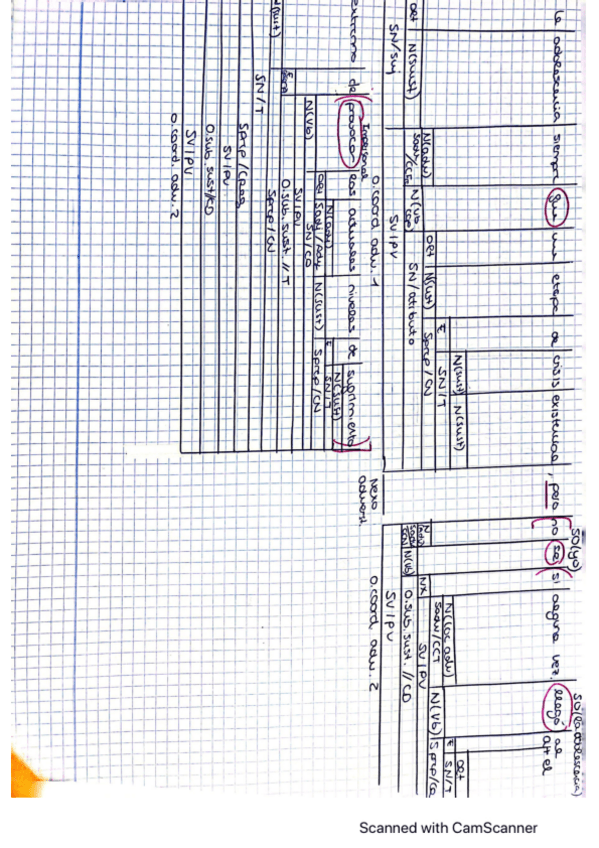 la adolescencia siempre fue una etapa de crisis existencial, pero no sé si alguna vez llegó al
SO(yo)
SO(la adolescencia)
a+el
det
N(sust)
N(adv)
SAdv/CCT
N(vb cop)
det
N(sust)
E
N(sust)
N(sust)
SN/T
Sprep/CN
SN/suj
SN/atributo
SV/PV
O.coord adv. 1
Nexo advers.
N(adv)
N(vb)
NX
N(loc adv)
SAdv/CCT
N(vb)
E
det
SN/T
SV/PV
O.sub.sust.//CD
SV/PV
O.coord adv. 2
extremo de provocar los actuales niveles de sufrimiento
Impersonal
N(sust)
E
N(vb)
det
N(adj)
SAdj/Ady
N(sust)
E
N(sust)
SN/T
Sprep/CN
SN/CD
SV/PV
O.sub.sust.//T
Sprep/CN
SN/T
SV/PV
O.sub.sust/CD
SV/PV
O.coord. adv. 2
Scanned with CamScanner